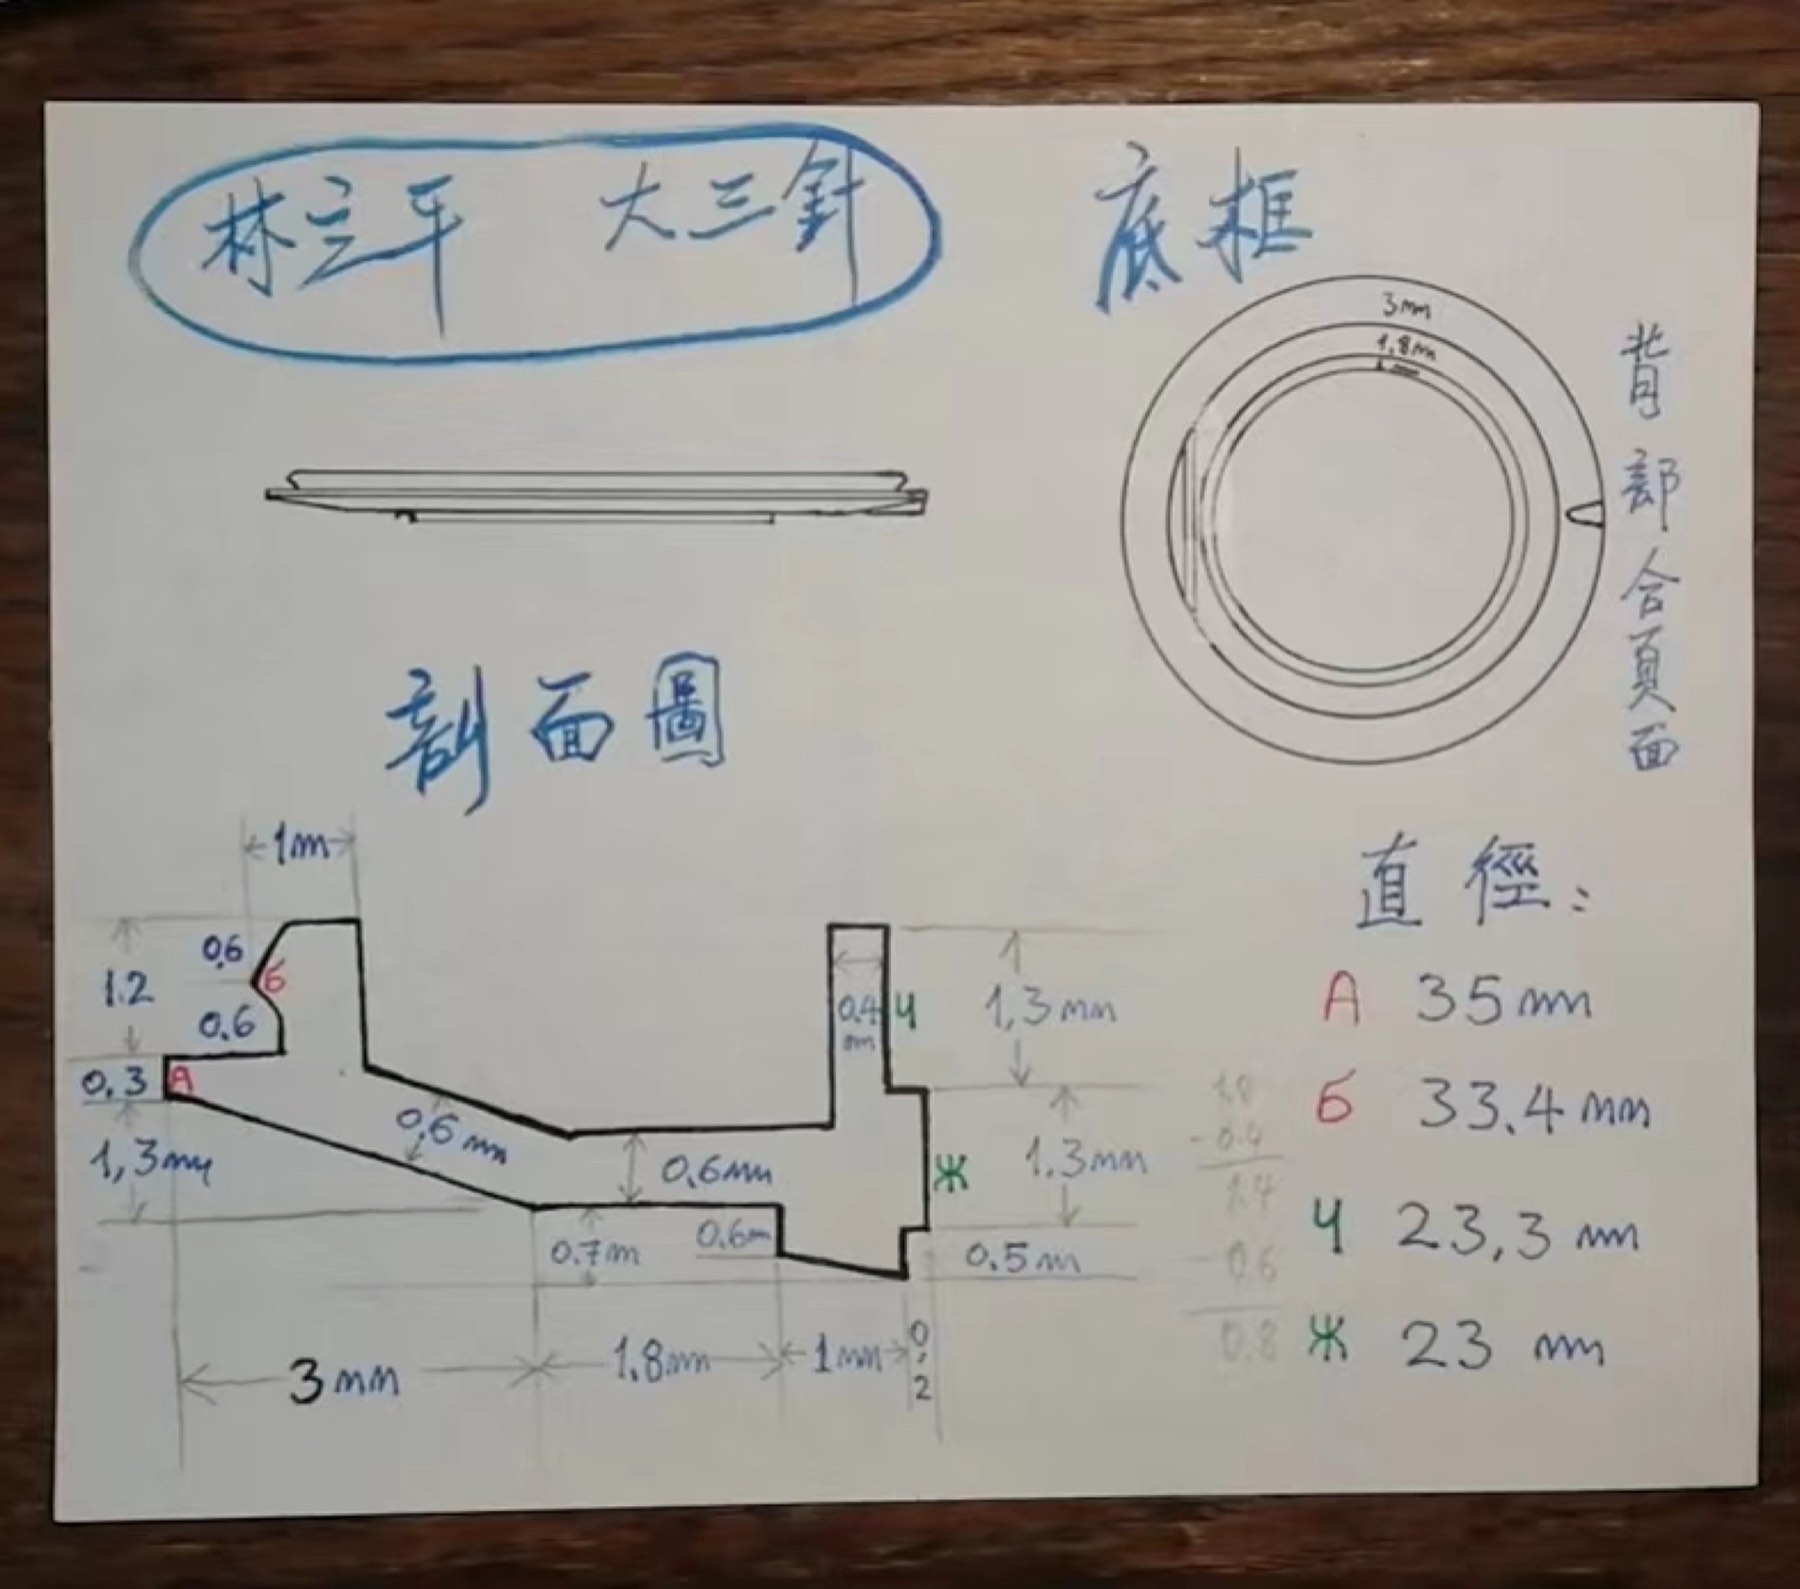 林立平 大三針
底框
3mm
1.8m
背部合頁面
剖面圖
1m
0.6
1.2
б
0.6
0.3
A
1,3mm
0.6mm
0.6mm
0.7m
0.6m
0.4
mm
Ч
1,3mm
Ж
1.3mm
0.5m
3mm
1.8mm
1mm
0.2
1.8
-0.4
1.4
-0.6
0.8
直徑:
A 35mm
б 33.4mm
Ч 23,3mm
Ж 23mm